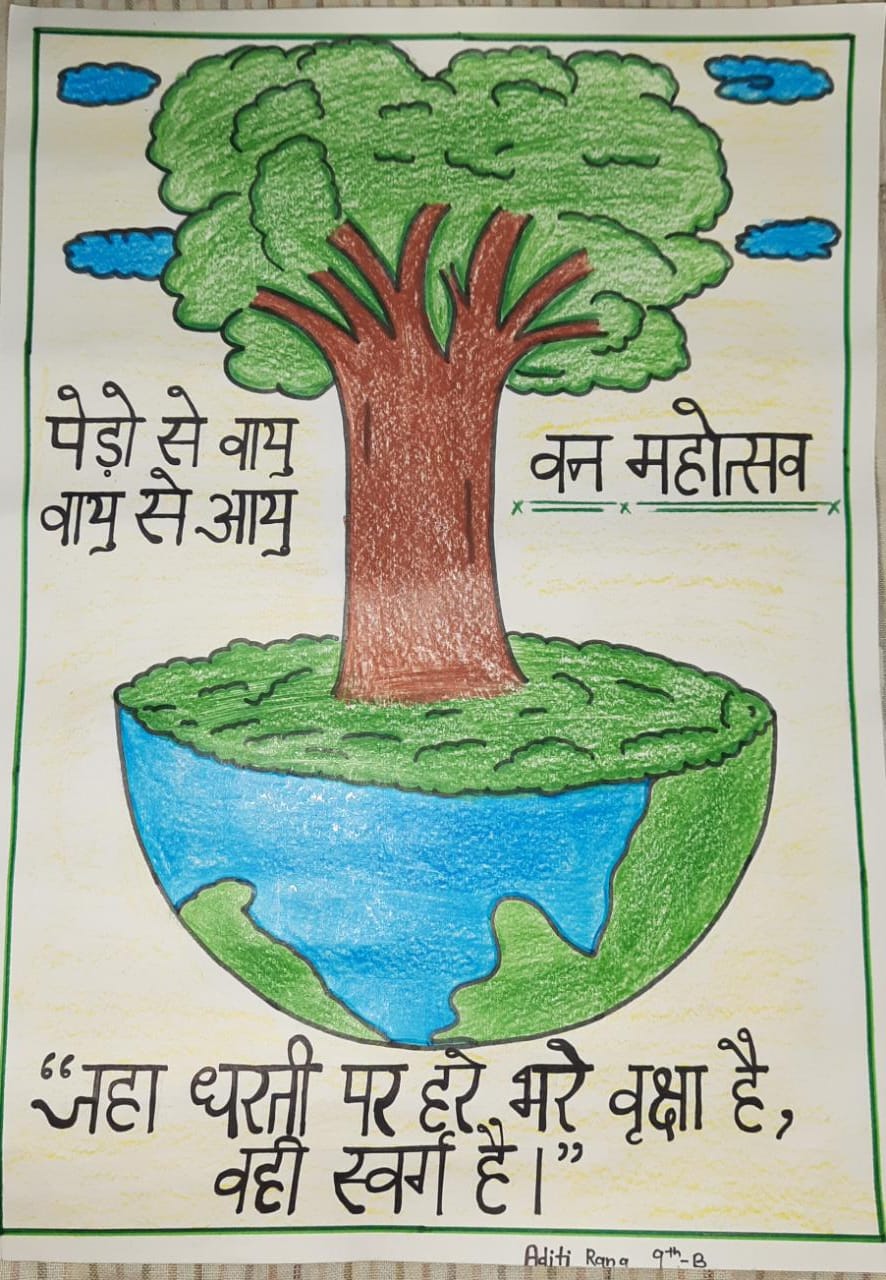 पेड़ो से वायु
वायु से आयु
वन महोत्सव
“जहा धरती पर हरे भरे वृक्षा है,
वही स्वर्ग है।”
Aditi Rana 9th-B